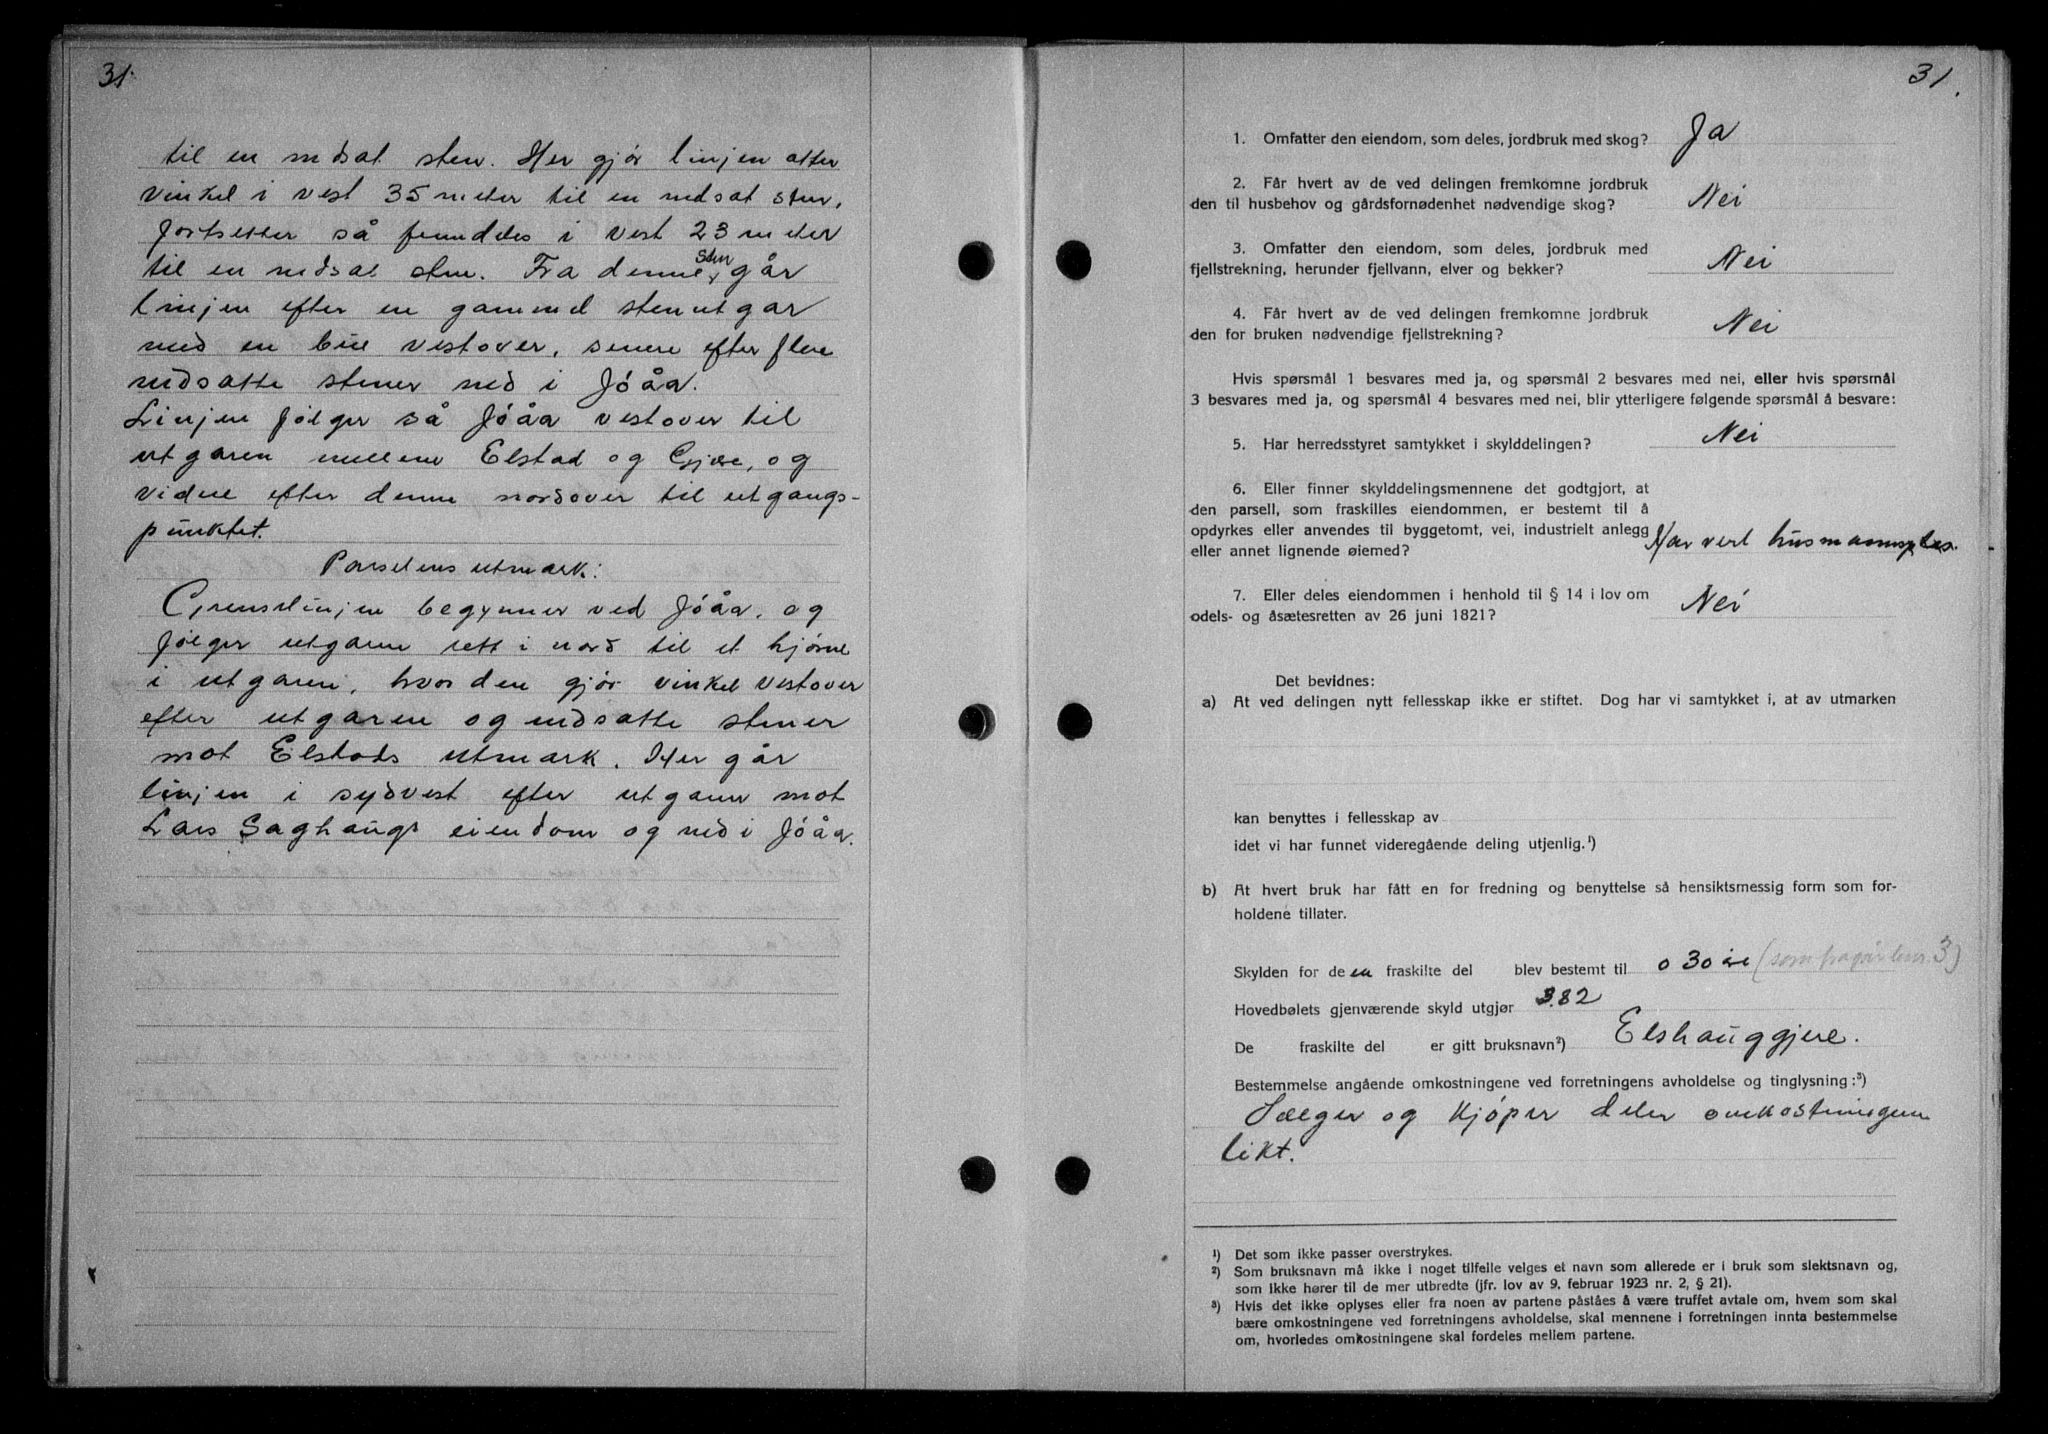 31.
til en nedsat sten. Her gjør linjen atter
vinkel i vest 35 meter til en nedsat sten,
fortsetter så fremdeles i vest 23 meter
til en nedsat sten. Fra denne sten går
linjen efter en gammel stenutgar
med en bue vestover, senere efter flere
nedsatte stener ned i Jóåa.
Linjen følger så Jóåa vestover til
utgaren mellem Elstad og Gjære, og
videre efter denne nordover til utgangs-
punktet.
Parselens utmark:
Grenselinjen begynner ved Jóåa, og
følger utgaren rett i nord til et hjørne
i utgaren, hvor den gjør vinkel vestover
efter utgaren og nedsatte stener
mot Elstads utmark. Her går
linjen i sydvest efter utgaren mot
Lars Saghaugs eiendom og ned i Jóåa.
31.
1. Omfatter den eiendom, som deles, jordbruk med skog? Ja
2. Får hvert av de ved delingen fremkomne jordbruk
den til husbehov og gårdsfornødenhet nødvendige skog? Nei
3. Omfatter den eiendom, som deles, jordbruk med
fjellstrekning, herunder fjellvann, elver og bekker? Nei
4. Får hvert av de ved delingen fremkomne jordbruk
den for bruken nødvendige fjellstrekning? Nei
Hvis spørsmål 1 besvares med ja, og spørsmål 2 besvares med nei, eller hvis spørsmål
3 besvares med ja, og spørsmål 4 besvares med nei, blir ytterligere følgende spørsmål å besvare:
5. Har herredsstyret samtykket i skylddelingen? Nei
6. Eller finner skylddelingsmennene det godtgjort, at
den parsell, som fraskilles eiendommen, er bestemt til å
opdyrkes eller anvendes til byggetomt, vei, industrielt anlegg
eller annet lignende øiemed? Har vert husmannsplas.
7. Eller deles eiendommen i henhold til § 14 i lov om
odels- og åsætesretten av 26 juni 1821? Nei
Det bevidnes:
a) At ved delingen nytt fellesskap ikke er stiftet. Dog har vi samtykket i, at av utmarken
kan benyttes i fellesskap av
idet vi har funnet videregående deling utjenlig.¹)
b) At hvert bruk har fått en for fredning og benyttelse så hensiktsmessig form som for-
holdene tillater.
Skylden for de en fraskilte del blev bestemt til 0 30 øre (som fragår bnr. 3)
Hovedbølets gjenværende skyld utgjør 3.82
De fraskilte del er gitt bruksnavn²) Elshauggjere.
Bestemmelse angående omkostningene ved forretningens avholdelse og tinglysning:³)
Sælger og kjóper deler omkostningene
likt.
¹) Det som ikke passer overstrykes.
²) Som bruksnavn må ikke i noget tilfelle velges et navn som allerede er i bruk som slektsnavn og,
som ikke hører til de mer utbredte (jfr. lov av 9. februar 1923 nr. 2, § 21).
³) Hvis det ikke oplyses eller fra noen av partene påståes å være truffet avtale om, hvem som skal
bære omkostningene ved forretningens avholdelse, skal mennene i forretningen innta bestemmelse
om, hvorledes omkostningene skal fordeles mellem partene.